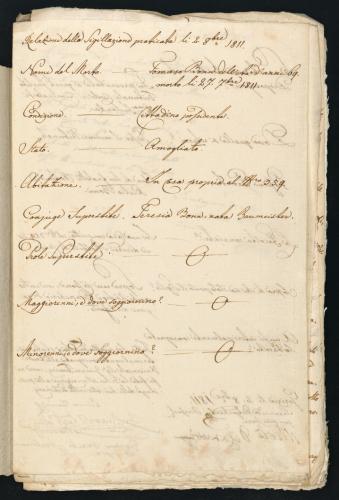 Relazione della Sigillazione praticata li 2 8bre 1811.
Nome del Morto. Tomaso Bona d'anni 69.
morto li 27 7bre 1811.
Condizione. Cittadino possidente.
Stato. Amogliato.
Abitazione. In casa propria al Nro 359.
Conjuge Superstite. Teresia Bona nata Baumeister.
Prole Superstite. O
Maggiorenni, e dove soggiornino? O
Minorenni, e dove soggiornino? O